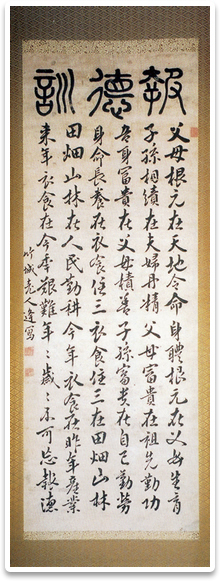 報德訓
父母根元在天地令命身體根元在父母生育
子孫相續在夫婦丹精父母富貴在祖先勤功
吾身富貴在父母積善子孫富貴在自己勤勞
身命長養在衣食住三衣食住三在田畑山林
田畑山林在人民勤耕今年衣食在昨年産業
来年衣食在今年艱難年〻歳〻不可忘報德
城老人 寫